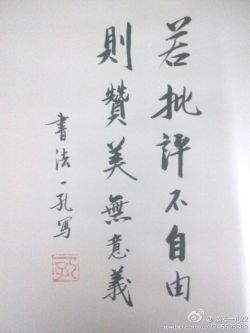 若批評不自由
則贊美無意義
書法一孔寫